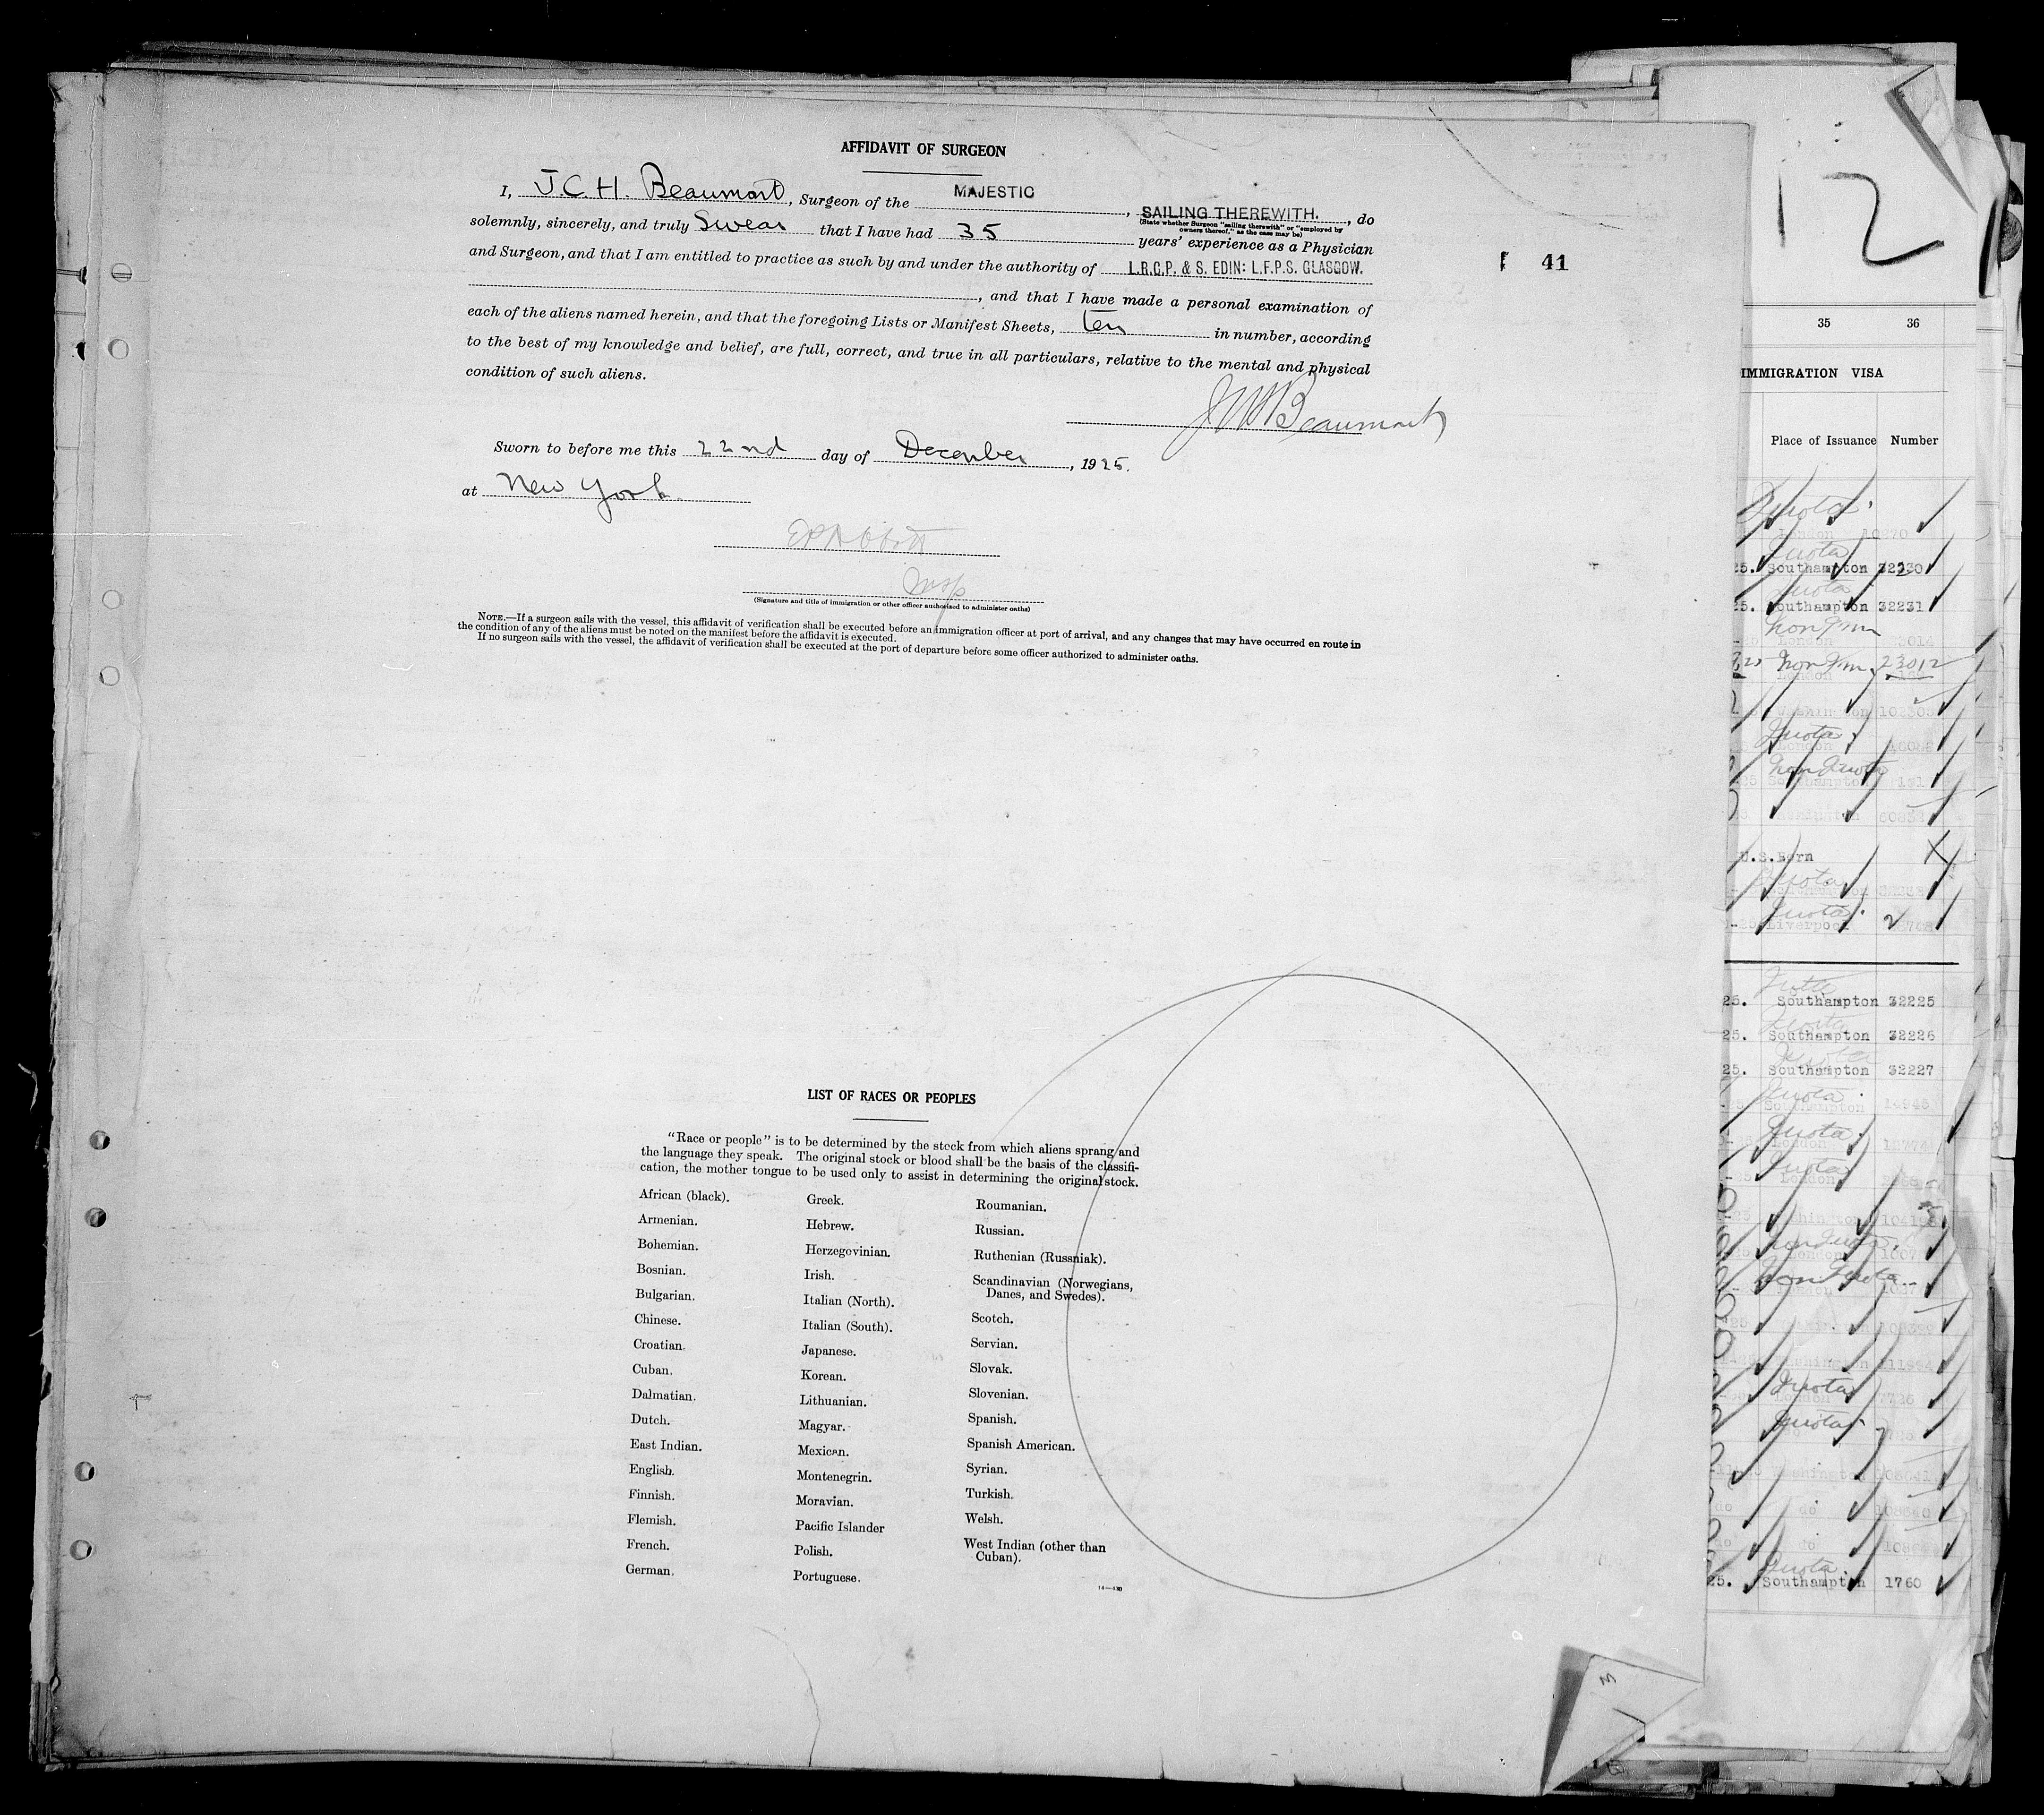 AFFIDAVIT OF SURGEON
I, J.C.H. Beaumont, Surgeon of the MAJESTIC, SAILING THEREWITH., do
(State whether Surgeon "sailing therewith" or "employed by
owners thereof," as the case may be)
solemnly, sincerely, and truly Swear that I have had 35 years' experience as a Physician
and Surgeon, and that I am entitled to practice as such by and under the authority of L.R.C.P. & S. EDIN: L.F.P.S. GLASGOW.
, and that I have made a personal examination of
each of the aliens named herein, and that the foregoing Lists or Manifest Sheets, ten in number, according
to the best of my knowledge and belief, are full, correct, and true in all particulars, relative to the mental and physical
condition of such aliens.
JCHBeaumont
Sworn to before me this 22nd day of December, 1925.
at New York.
Insp
(Signature and title of immigration or other officer authorized to administer oaths)
NOTE.—If a surgeon sails with the vessel, this affidavit of verification shall be executed before an immigration officer at port of arrival, and any changes that may have occurred en route in
the condition of any of the aliens must be noted on the manifest before the affidavit is executed.
If no surgeon sails with the vessel, the affidavit of verification shall be executed at the port of departure before some officer authorized to administer oaths.
41
LIST OF RACES OR PEOPLES
"Race or people" is to be determined by the stock from which aliens sprang and
the language they speak. The original stock or blood shall be the basis of the classifi-
cation, the mother tongue to be used only to assist in determining the original stock.
African (black).
Armenian.
Bohemian.
Bosnian.
Bulgarian.
Chinese.
Croatian.
Cuban.
Dalmatian.
Dutch.
East Indian.
English.
Finnish.
Flemish.
French.
German.
Greek.
Hebrew.
Herzegovinian.
Irish.
Italian (North).
Italian (South).
Japanese.
Korean.
Lithuanian.
Magyar.
Mexican.
Montenegrin.
Moravian.
Pacific Islander
Polish.
Portuguese.
Roumanian.
Russian.
Ruthenian (Russniak).
Scandinavian (Norwegians,
Danes, and Swedes).
Scotch.
Servian.
Slovak.
Slovenian.
Spanish.
Spanish American.
Syrian.
Turkish.
Welsh.
West Indian (other than
Cuban).
12
35 36
IMMIGRATION VISA
Place of Issuance Number
Quota
Quota
25. Southampton 32230
25. Southampton 32231
Non Imm
Non Imm 23012
London
Quota
Non Quota
U.S.Born
Quota
Quota
Liverpool
25. Southampton 32225
25. Southampton 32226
25. Southampton 32227
Quota
Quota
Quota
London
Non Quota
Non Quota
Quota
Quota
do do
do do
Quota
25. Southampton 1760
3